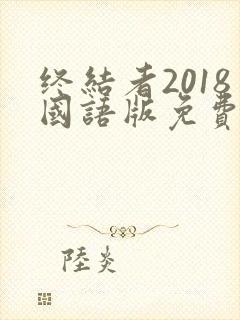 终結者2018
國語版免費
陸炎